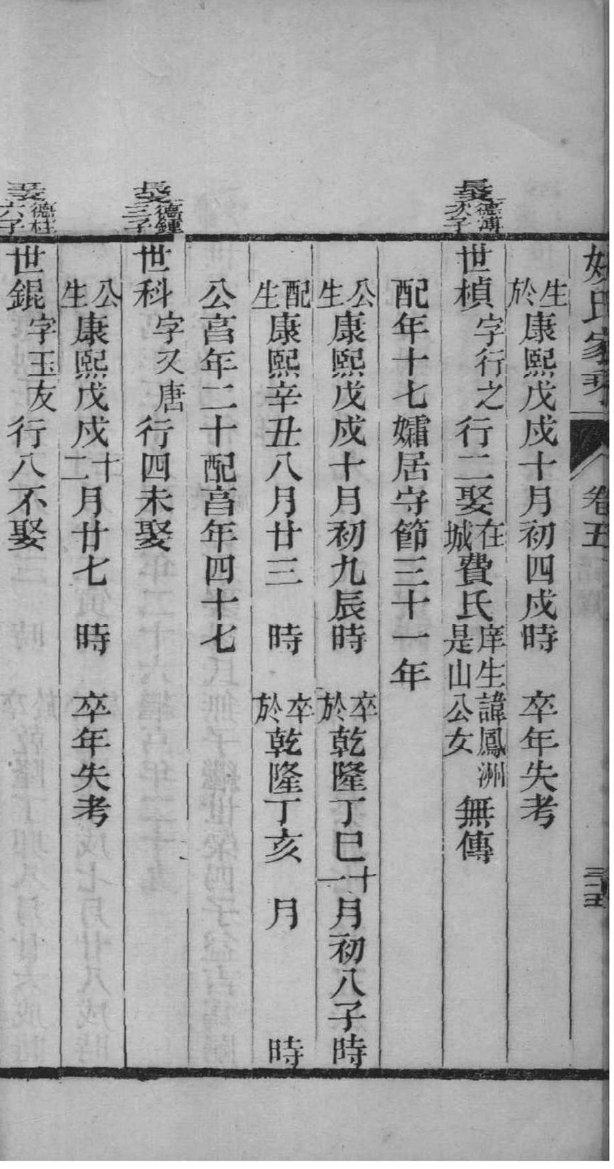 姚氏家乘 卷五 三十五
生於康熙戊戌十月初四戌時 卒年失考
長支德溥次子
世楨字行之行二娶在城費氏庠生諱鳳洲是山公女無傳
配年十七孀居守節三十一年
公生康熙戊戌十月初九辰時 卒於乾隆丁巳十一月初八子時
配生康熙辛丑八月廿三 時 卒於乾隆丁亥 月 時
公享年二十配享年四十七
長支德鍾三子
世科字又唐行四未娶
公生康熙戊戌十二月廿七 時 卒年失考
長支德柱六子
世錕字玉友行八不娶